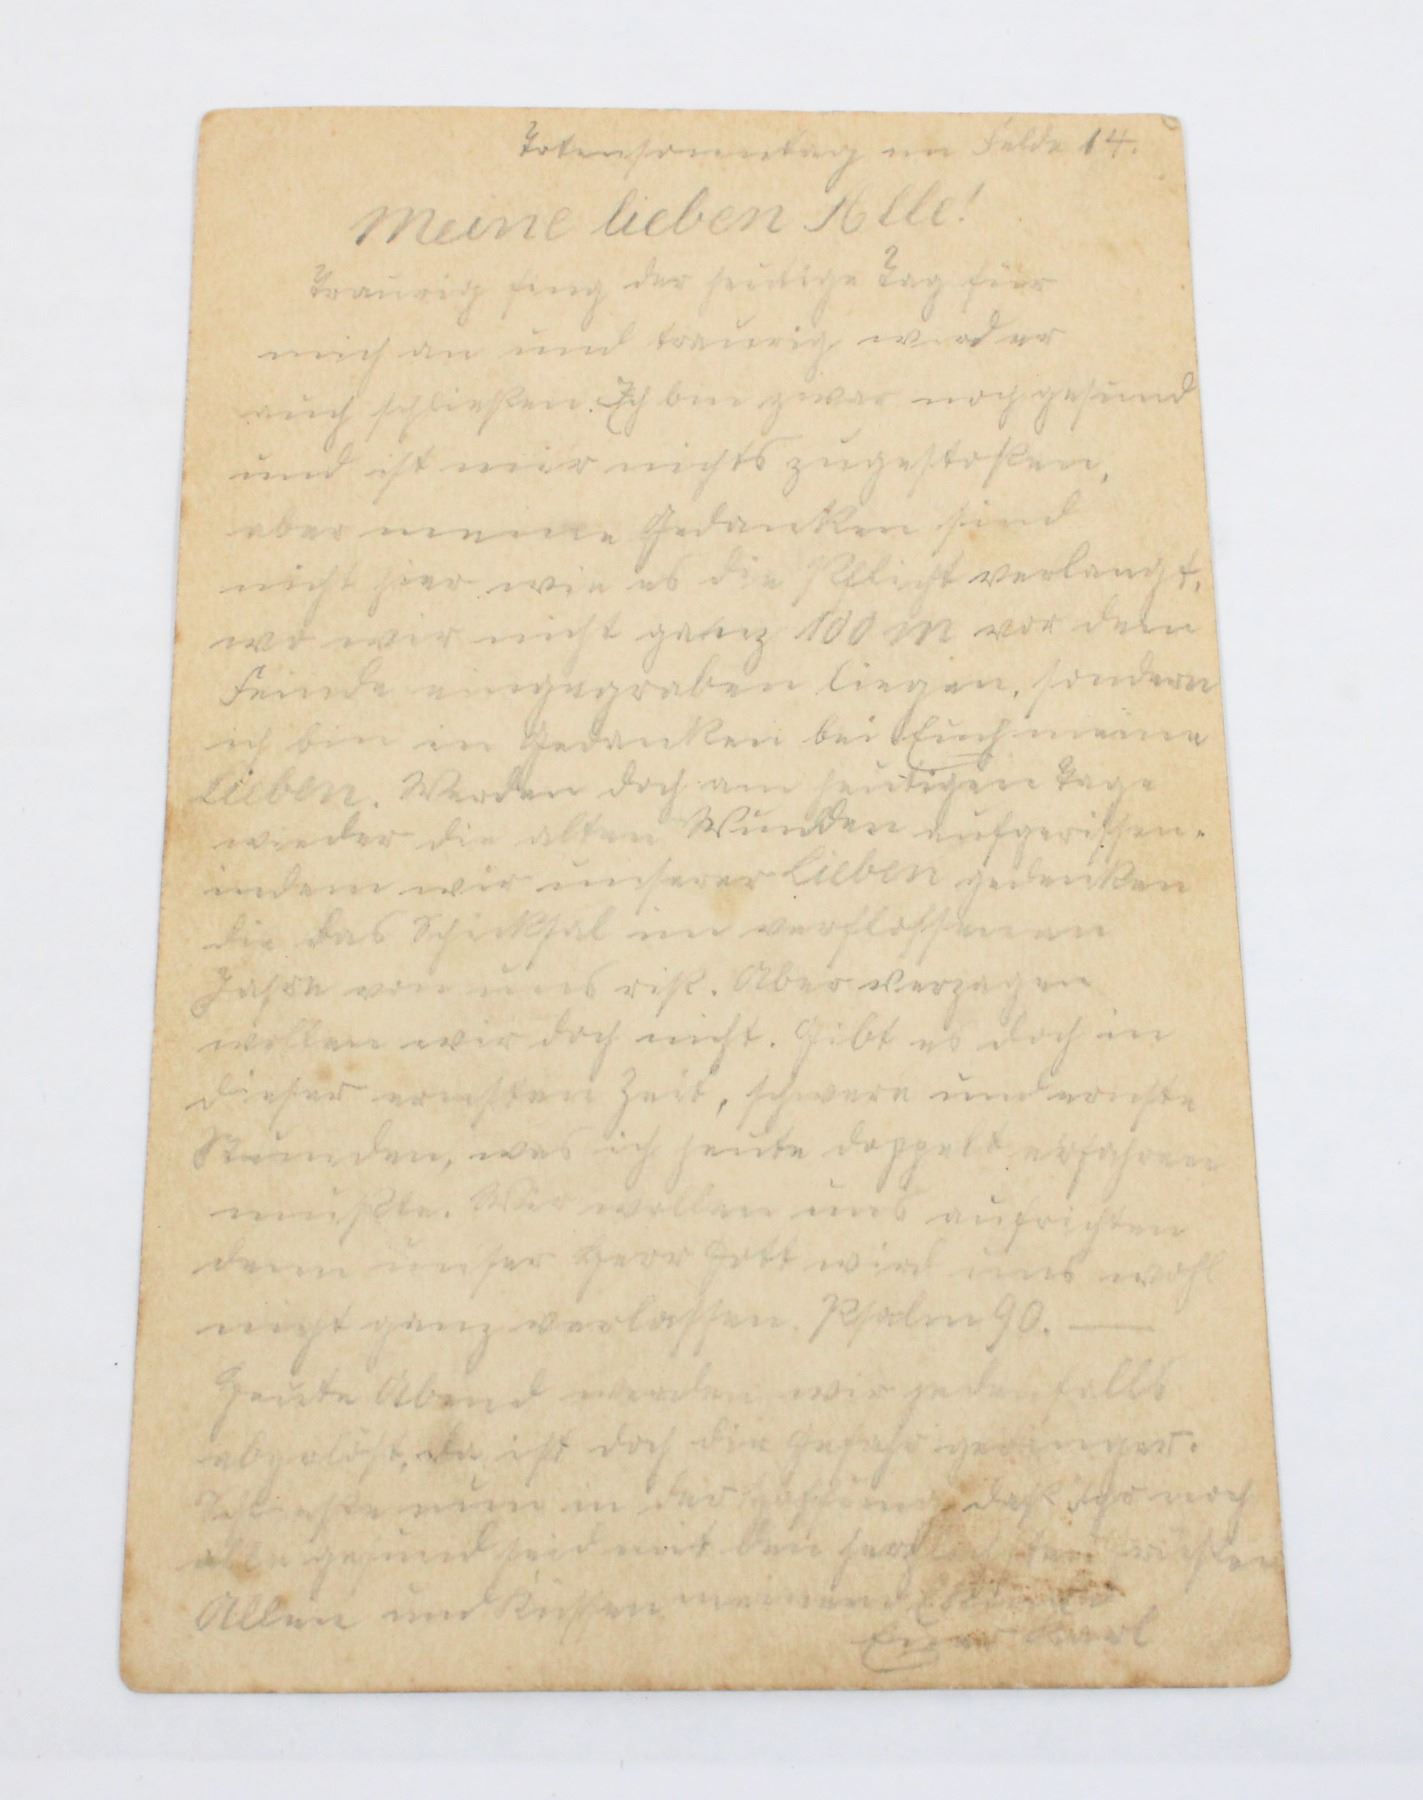 Totensonntag im Felde 14.
Meine lieben Alle!
Traurig fing der heutige Tag für
mich an und traurig wird er
auch schließen. Ich bin zwar noch gesund
und ist mir nichts zugestoßen,
aber meine Gedanken sind
nicht hier wie es die Pflicht verlangt,
wo wir nicht ganz 100 m vor dem
Feinde eingegraben liegen, sondern
ich bin in Gedanken bei Euch meine
Lieben. Werden doch am heutigen Tage
wieder die alten Wunden aufgerissen,
indem wir unserer Lieben gedenken
die das Schicksal im verflossenen
Jahre von uns riß. Aber verzagen
wollen wir doch nicht. Gibt es doch in
dieser ernsten Zeit, schwere und ernste
Stunden, was ich heute doppelt erfahren
mußte. Wir wollen uns aufrichten
denn unser Herr Gott wird uns wohl
nicht ganz verlassen. Psalm 90. —
Heute Abend werden wir jedenfalls
abgelöst, da ist doch die Gefahr geringer.
Schließe nun in der Hoffnung daß Ihr noch
alle gesund seid mit den herzlichsten
Allen und Küssen meinem
Euer Karl